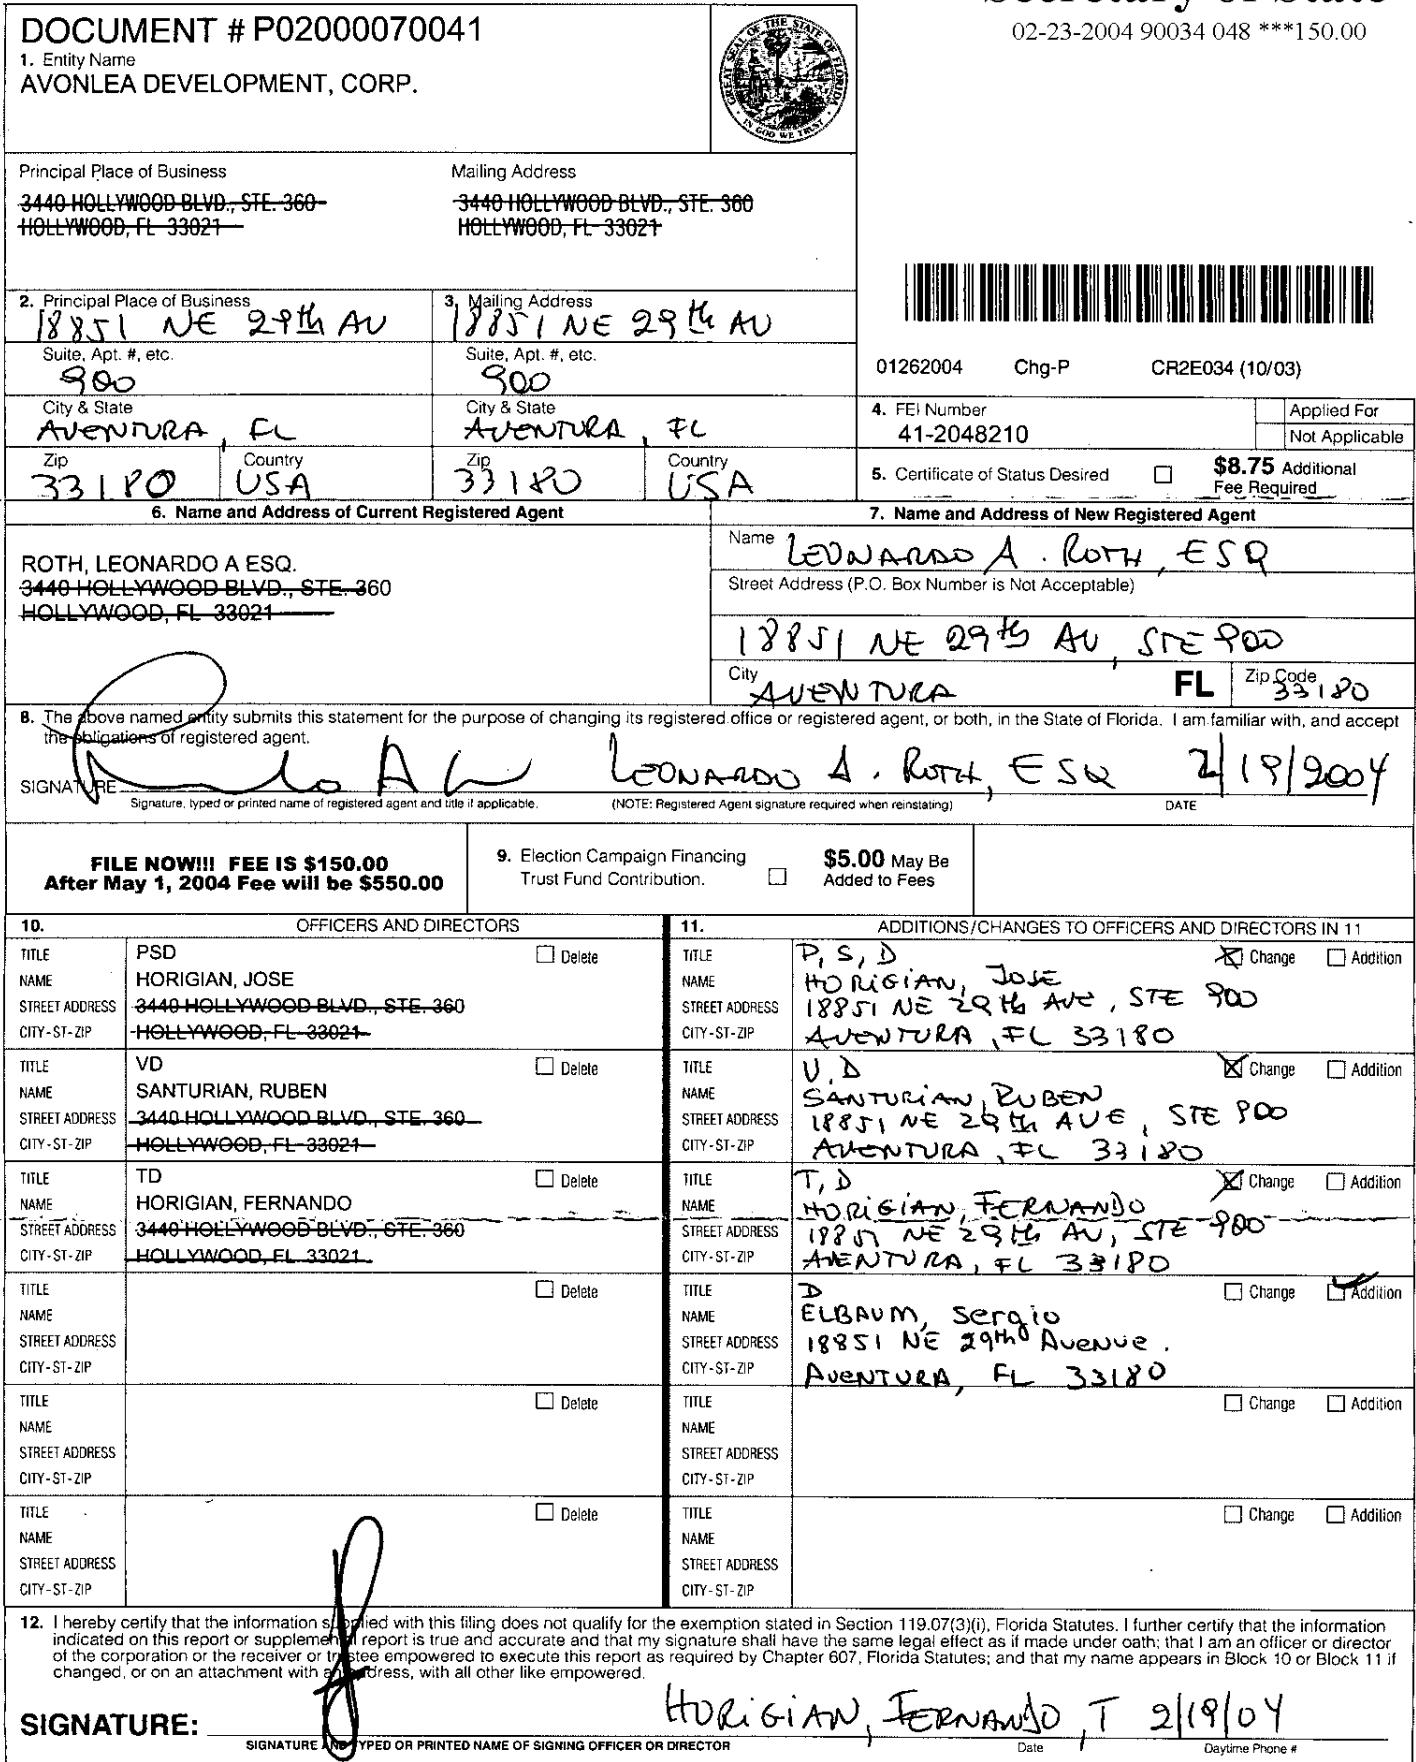 DOCUMENT # P02000070041
1. Entity Name
AVONLEA DEVELOPMENT, CORP.
GREAT SEAL OF THE STATE OF FLORIDA
IN GOD WE TRUST
02-23-2004 90034 048 ***150.00
Principal Place of Business
3440 HOLLYWOOD BLVD., STE. 360
HOLLYWOOD, FL 33021
Mailing Address
3440 HOLLYWOOD BLVD., STE. 360
HOLLYWOOD, FL 33021
2. Principal Place of Business
18851 NE 29th AV
Suite, Apt. #, etc.
900
City & State
AVENTURA, FL
Zip
33180
Country
USA
3. Mailing Address
18851 NE 29th AV
Suite, Apt. #, etc.
900
City & State
AVENTURA, FL
Zip
33180
Country
USA
01262004 Chg-P CR2E034 (10/03)
4. FEI Number
41-2048210
Applied For
Not Applicable
5. Certificate of Status Desired
$8.75 Additional
Fee Required
6. Name and Address of Current Registered Agent
ROTH, LEONARDO A ESQ.
3440 HOLLYWOOD BLVD., STE. 360
HOLLYWOOD, FL 33021
7. Name and Address of New Registered Agent
Name LEONARDO A. ROTH, ESQ
Street Address (P.O. Box Number is Not Acceptable)
18851 NE 29th AV, STE 900
City AVENTURA FL Zip Code 33180
8. The above named entity submits this statement for the purpose of changing its registered office or registered agent, or both, in the State of Florida. I am familiar with, and accept
the obligations of registered agent.
SIGNATURE LEONARDO A. ROTH, ESQ 2/19/2004
Signature, typed or printed name of registered agent and title if applicable. (NOTE: Registered Agent signature required when reinstating) DATE
FILE NOW!!! FEE IS $150.00
After May 1, 2004 Fee will be $550.00
9. Election Campaign Financing
Trust Fund Contribution.
$5.00 May Be
Added to Fees
10. OFFICERS AND DIRECTORS
TITLE PSD Delete
NAME HORIGIAN, JOSE
STREET ADDRESS 3440 HOLLYWOOD BLVD., STE. 360
CITY-ST-ZIP HOLLYWOOD, FL 33021
TITLE VD Delete
NAME SANTURIAN, RUBEN
STREET ADDRESS 3440 HOLLYWOOD BLVD., STE. 360
CITY-ST-ZIP HOLLYWOOD, FL 33021
TITLE TD Delete
NAME HORIGIAN, FERNANDO
STREET ADDRESS 3440 HOLLYWOOD BLVD., STE. 360
CITY-ST-ZIP HOLLYWOOD, FL 33021
TITLE Delete
NAME
STREET ADDRESS
CITY-ST-ZIP
TITLE Delete
NAME
STREET ADDRESS
CITY-ST-ZIP
TITLE Delete
NAME
STREET ADDRESS
CITY-ST-ZIP
11. ADDITIONS/CHANGES TO OFFICERS AND DIRECTORS IN 11
TITLE P, S, D Change Addition
NAME HORIGIAN, JOSE
STREET ADDRESS 18851 NE 29th AVE, STE 900
CITY-ST-ZIP AVENTURA, FL 33180
TITLE V, D Change Addition
NAME SANTURIAN, RUBEN
STREET ADDRESS 18851 NE 29th AVE, STE 900
CITY-ST-ZIP AVENTURA, FL 33180
TITLE T, D Change Addition
NAME HORIGIAN, FERNANDO
STREET ADDRESS 18851 NE 29th AV, STE 900
CITY-ST-ZIP AVENTURA, FL 33180
TITLE D Change Addition
NAME ELBAUM, Sergio
STREET ADDRESS 18851 NE 29th Avenue.
CITY-ST-ZIP AVENTURA, FL 33180
TITLE Change Addition
NAME
STREET ADDRESS
CITY-ST-ZIP
TITLE Change Addition
NAME
STREET ADDRESS
CITY-ST-ZIP
12. I hereby certify that the information supplied with this filing does not qualify for the exemption stated in Section 119.07(3)(i), Florida Statutes. I further certify that the information
indicated on this report or supplemental report is true and accurate and that my signature shall have the same legal effect as if made under oath; that I am an officer or director
of the corporation or the receiver or trustee empowered to execute this report as required by Chapter 607, Florida Statutes; and that my name appears in Block 10 or Block 11 if
changed, or on an attachment with an address, with all other like empowered.
SIGNATURE: HORIGIAN, FERNANDO, T 2/19/04
SIGNATURE AND TYPED OR PRINTED NAME OF SIGNING OFFICER OR DIRECTOR Date Daytime Phone #